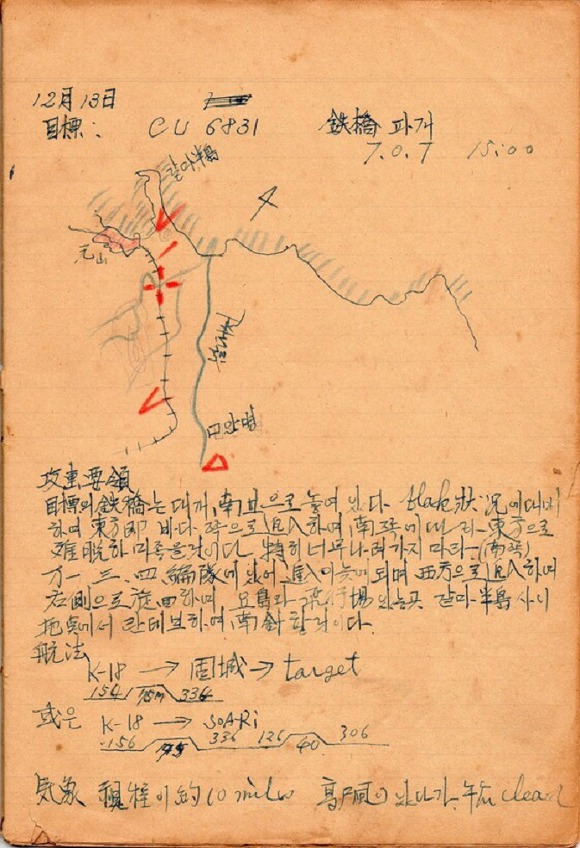 12月 13日
目標: CU 6831 鉄橋 파괴
7.0.7 15:00
갈마半島
元山
攻击要領
目標의 鉄橋는 대개 南北으로 놓여 있다 flak 狀況에 대비
하여 東方即 바다 쪽으로 進入하여 南쪽에 대 東方으로
離脱하 特히 너무 나려가지 마라 (南쪽)
万一 三.四 編隊에 있어 進入이 늦에 되며 西方으로 進入하여
右側으로 旋回하며 飛行場 있는곳 갈마半島 사이
地点에서 하여 南針 할것이다.
航法
K-18 → 固城 → target
154 75m 334
或은 K-18 → SOARi
156 75 336 126 40 306
気象 視程이 約10 mile 高層雲이 있다가 午后 clear